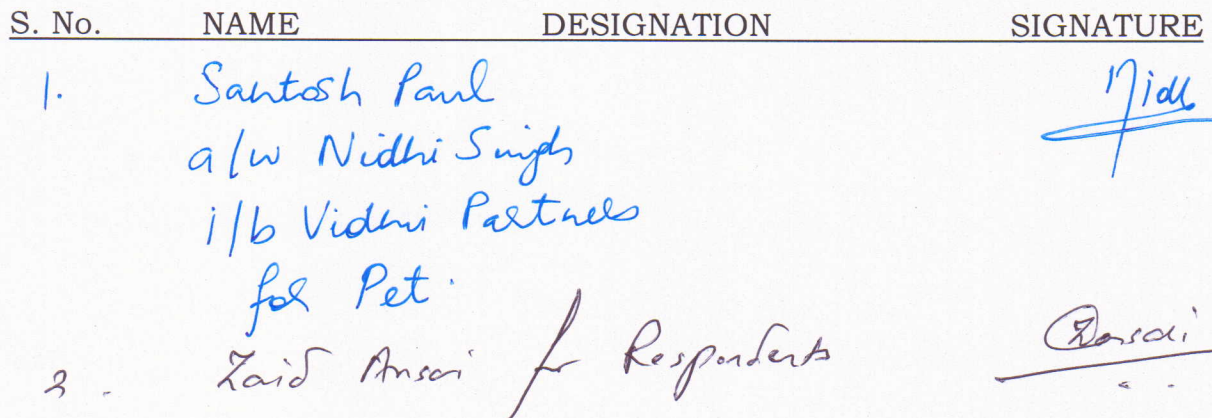 S. No. NAME DESIGNATION SIGNATURE
1. Santosh Paul Nidhi
a/w Nidhi Singh
i/b Vidhi Partners
for Pet.
2. Zaid Ansari for Respondents ZAnsari